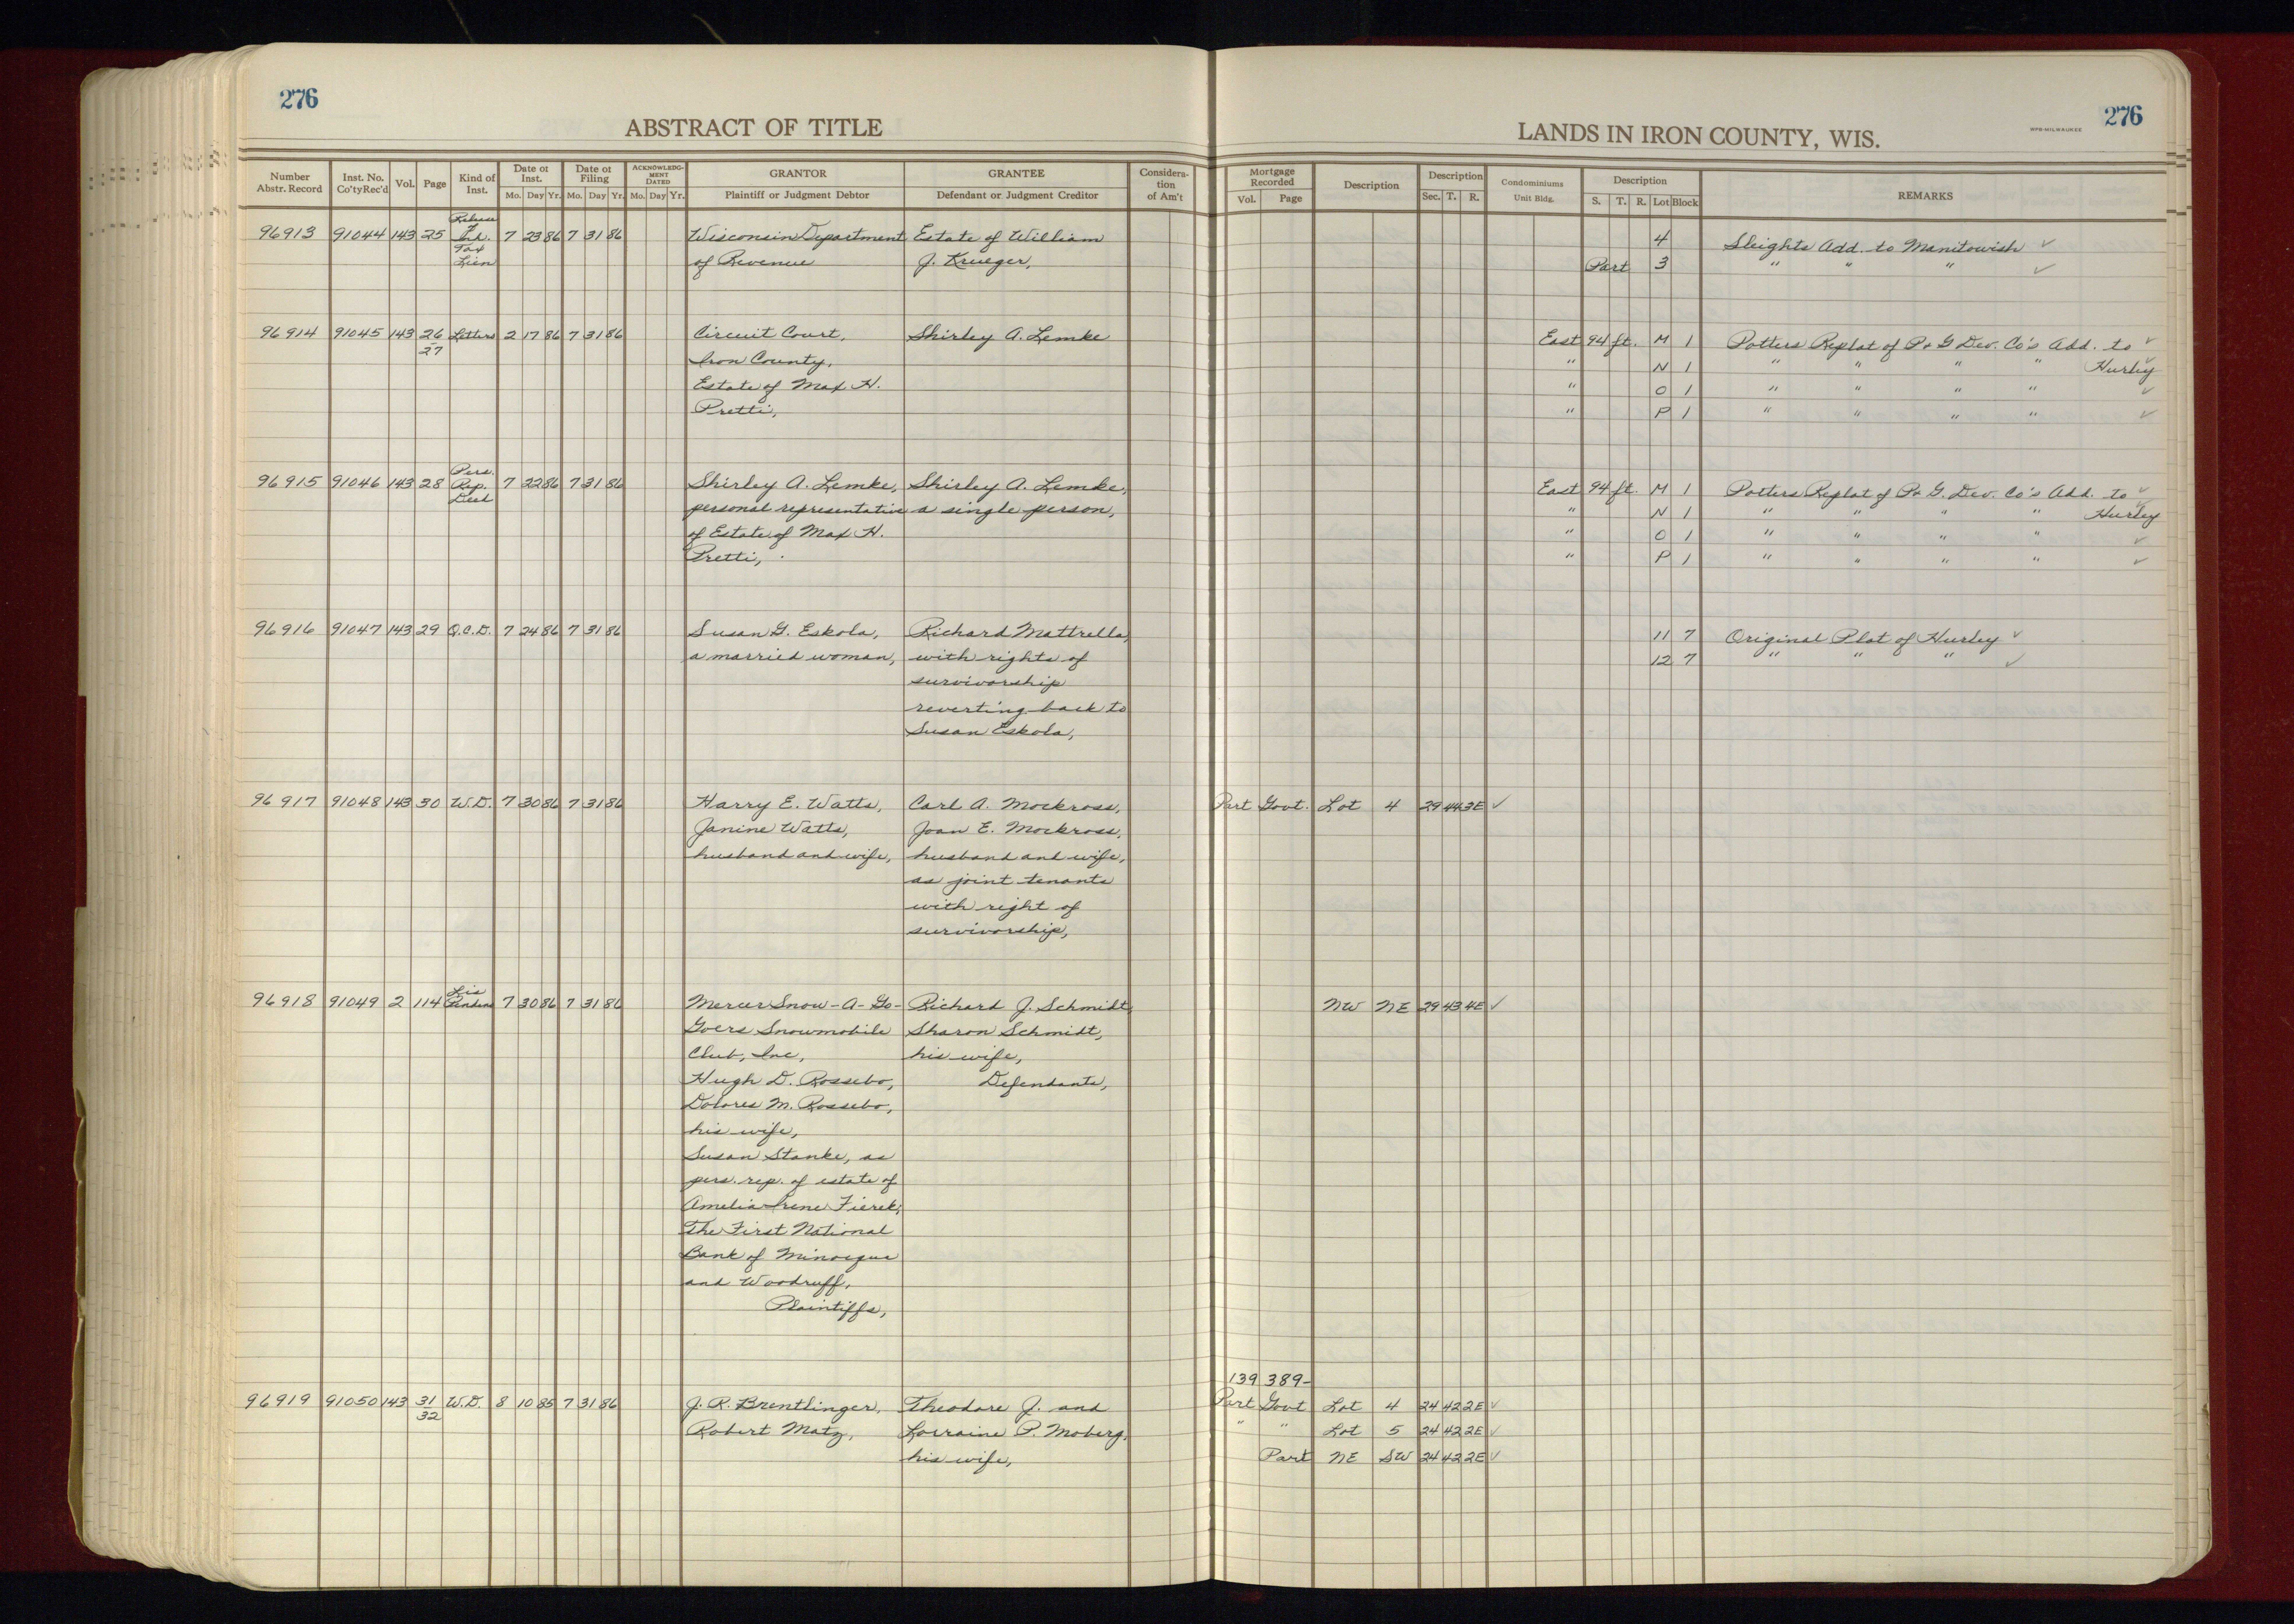 276
ABSTRACT OF TITLE
LANDS IN IRON COUNTY, WIS.
WPB-MILWAUKEE
276
Number Abstr. Record | Inst. No. Co'tyRec'd | Vol. | Page | Kind of Inst. | Date of Inst. Mo. Day Yr. | Date of Filing Mo. Day Yr. | ACKNOWLEDGMENT DATED Mo. Day Yr. | GRANTOR Plaintiff or Judgment Debtor | GRANTEE Defendant or Judgment Creditor | Considera-tion of Am't | Mortgage Recorded Vol. Page | Description | Description Sec. T. R. | Condominiums Unit Bldg. | Description S. T. R. Lot Block | REMARKS
Release
96913 91044 143 25 of Ind. 7 23 86 7 31 86 Wisconsin Department Estate of William 4 Sleights Add. to Manitowish ✓
Tax Lien of Revenue J. Krueger, Part 3 " " " ✓
96914 91045 143 26-27 Letters 2 17 86 7 31 86 Circuit Court, Shirley A. Lemke East 94 ft. M 1 Potters Replat of P & G Dev. Co's Add. to ✓
Iron County, " N 1 " " " " Hurley ✓
Estate of Max H. " O 1 " " " " ✓
Pretti, " P 1 " " " " ✓
Pers.
96915 91046 143 28 Rep. 7 22 86 7 31 86 Shirley A. Lemke, Shirley A. Lemke, East 94 ft. M 1 Potters Replat of P & G. Dev. Co's Add. to ✓
Deed personal representative a single person, " N 1 " " " " Hurley ✓
of Estate of Max H. " O 1 " " " " ✓
Pretti, " P 1 " " " " ✓
96916 91047 143 29 Q.C.D. 7 24 86 7 31 86 Susan G. Eskola, Richard Mattrella, 11 7 Original Plat of Hurley ✓
a married woman, with rights of 12 7 " " " ✓
survivorship
reverting back to
Susan Eskola,
96917 91048 143 30 W.D. 7 30 86 7 31 86 Harry E. Watts, Carl A. Mockross, Part Govt. Lot 4 29 44 3E ✓
Janine Watts, Joan E. Mockross,
husband and wife, husband and wife,
as joint tenants
with right of
survivorship,
Lis
96918 91049 2 114 Pendens 7 30 86 7 31 86 Mercer Snow-A-Go- Richard J. Schmidt, NW NE 29 43 4E ✓
Goers Snowmobile Sharon Schmidt,
Club, Inc, his wife,
Hugh D. Rossebo, Defendants,
Dolores M. Rossebo,
his wife,
Susan Stanke, as
pers. rep. of estate of
Amelia Irene Fierek,
The First National
Bank of Minocqua
and Woodruff,
Plaintiffs,
139 389-
96919 91050 143 31-32 W.D. 8 10 85 7 31 86 J. R. Brentlinger, Theodore J. and Part Govt Lot 4 24 42 2E ✓
Robert Matz, Lorraine P. Moberg, " " Lot 5 24 42 2E ✓
his wife, Part NE SW 24 42 2E ✓